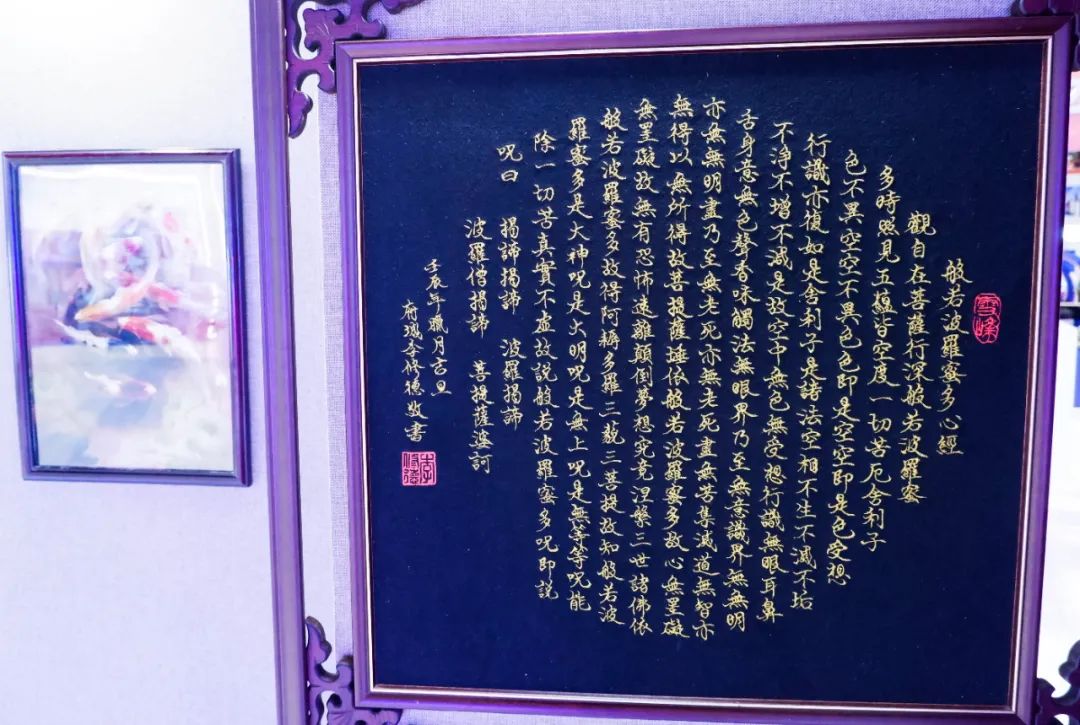 雪峰
般若波羅蜜多心經
觀自在菩薩行深般若波羅蜜
多時照見五蘊皆空度一切苦厄舍利子
色不異空空不異色色即是空空即是色受想
行識亦復如是舍利子是諸法空相不生不滅不垢
不淨不增不減是故空中無色無受想行識無眼耳鼻
舌身意無色聲香味觸法無眼界乃至無意識界無無明
亦無無明盡乃至無老死亦無老死盡無苦集滅道無智亦
無得以無所得故菩提薩埵依般若波羅蜜多故心無罣礙
無罣礙故無有恐怖遠離顛倒夢想究竟涅槃三世諸佛依
般若波羅蜜多故得阿耨多羅三藐三菩提故知般若波
羅蜜多是大神咒是大明咒是無上咒是無等等咒能
除一切苦真實不虛故說般若波羅蜜多咒即說
咒曰 揭諦揭諦 波羅揭諦
波羅僧揭諦 菩提薩婆訶
壬辰年臘月吉旦
府城李修德敬書
李修德